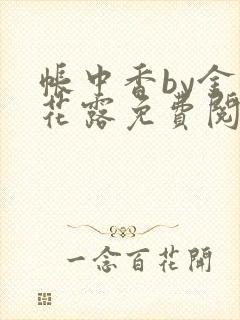 帳中香by金
花露免費閱
一念百花開